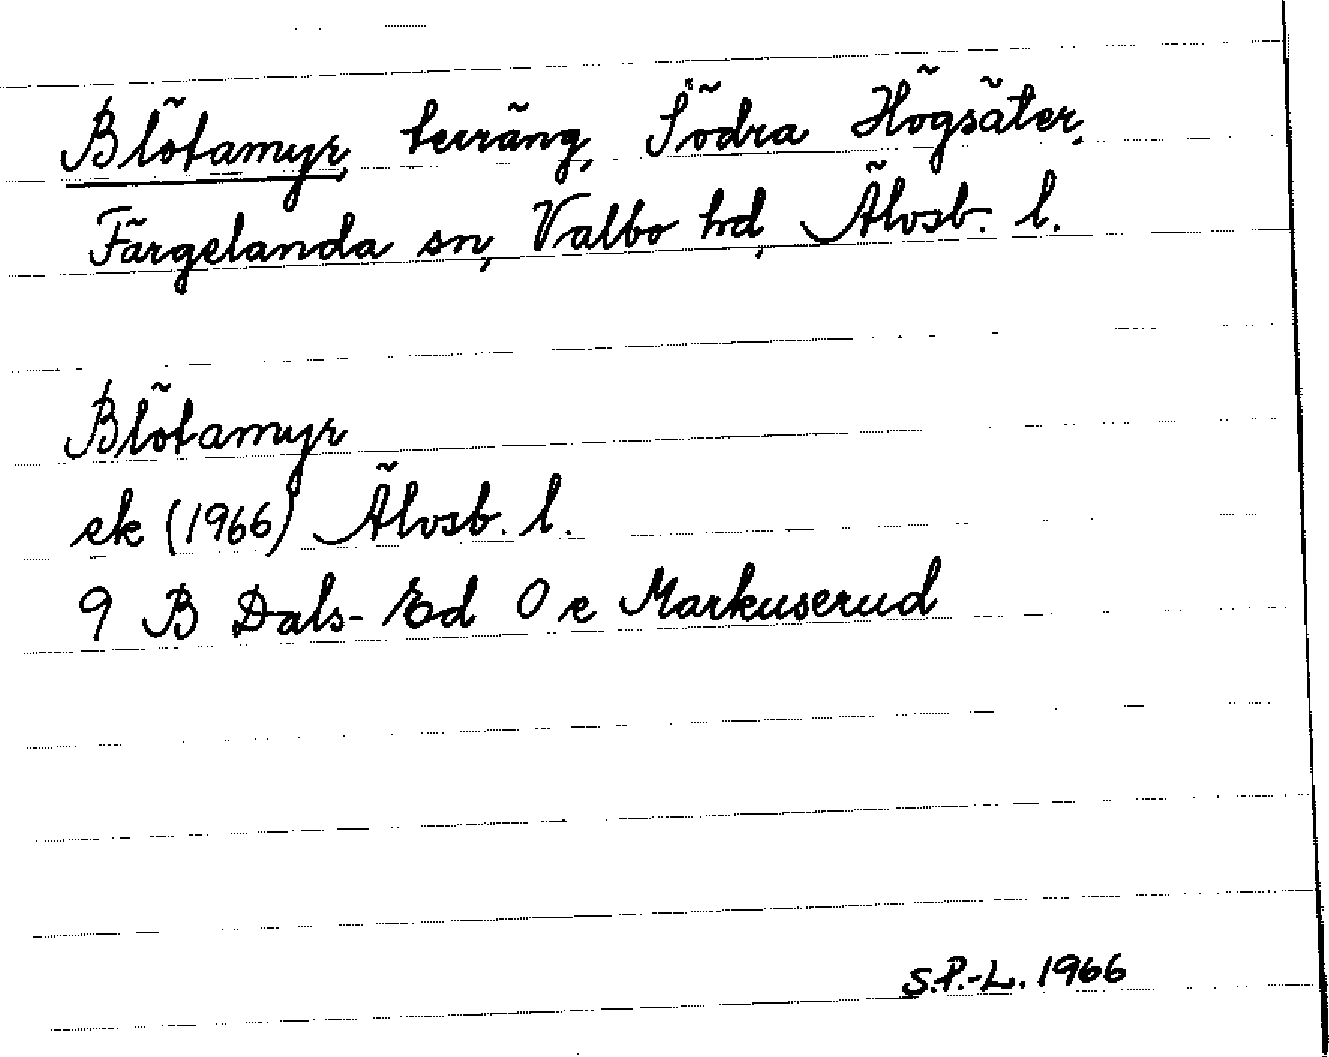 Blötamyr, terräng, Södra Högsäter,
Färgelanda sn, Valbo hd, Älvsb. l.
Blötamyr
ek (1966) Älvsb. l.
9 B Dals-Ed 0 e Markuserud
S.P.-L. 1966